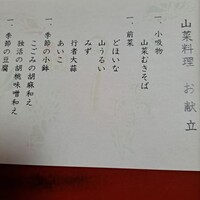 山菜料理 お献立
一、小吸物
山菜むきそば
一、前菜
どほいな
山うるい
みず
行者大蒜
あいこ
一、季節の小鉢
こごみの胡麻和え
独活の胡桃味噌和え
一、季節の豆腐